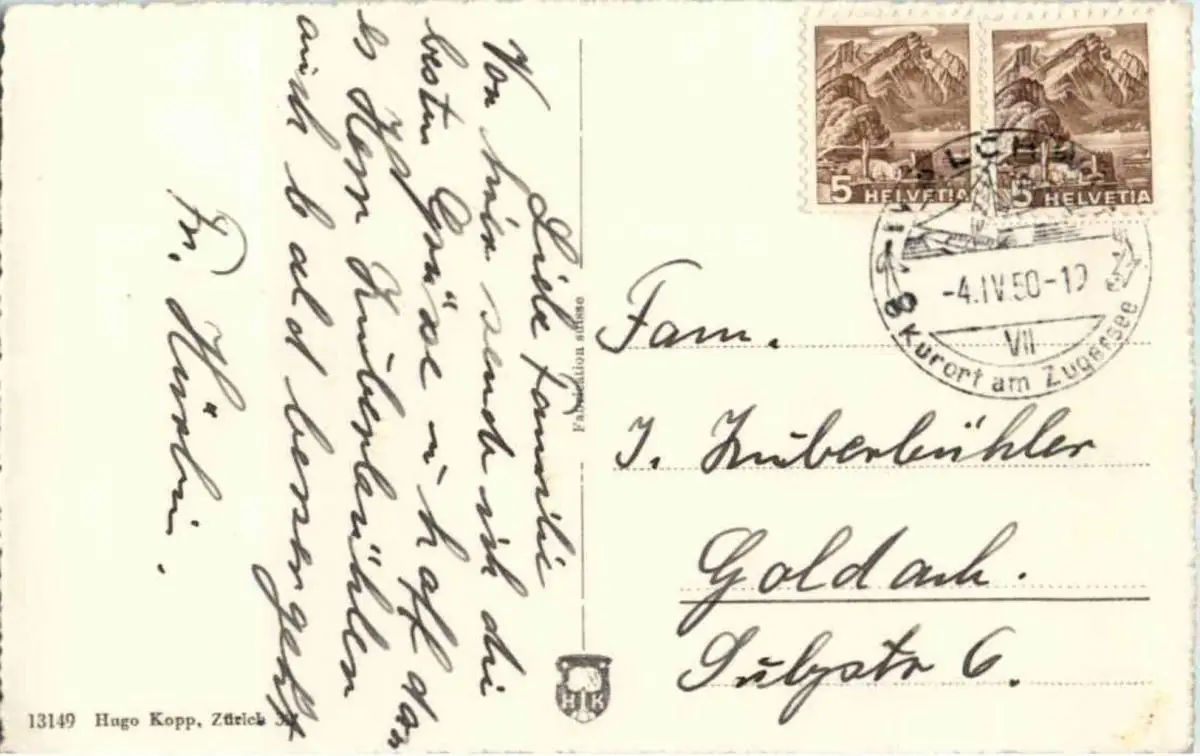 Liebe Familie
Von hier sende ich die
besten Grüsse u. hoffe das
es Herr Zuberbühler
auch bald besser geht
Fr.
Fabrication suisse
13149 Hugo Kopp, Zürich
H K
5 HELVETIA
5 HELVETIA
-4.IV.50-12
VII
Kurort am Zugersee
Fam.
J. Zuberbühler
Goldach.
Sulzstr 6.